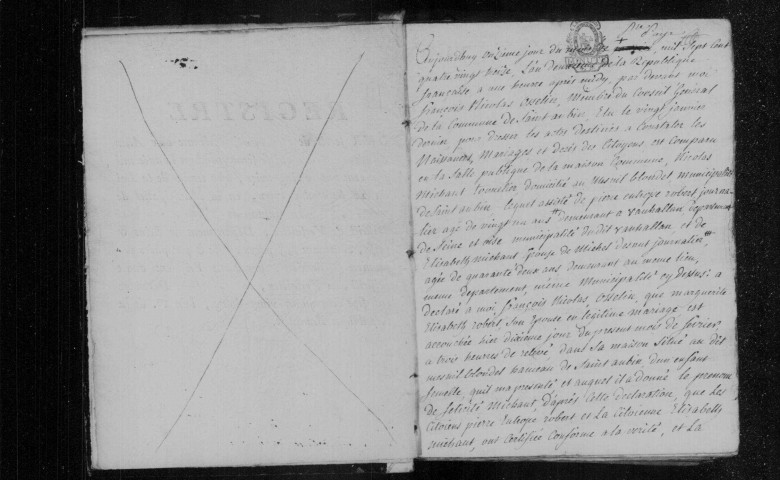 REGISTRE
Aujourdhuy onzieme jour du mois de mil sept cent
quatre vingt treize, L'an deuxieme de la République
française, a une heure après midy, par devant moi
françois Nicolas Osselin, Membre du Conseil Général
de la Commune de Saint aubin, Elu le vingt janvier
dernier, pour dresser les actes destinés a Constater les
Naissances, Mariages et decès des Citoyens, est Comparu
en la Salle publique de la maison Commune, Nicolas
Michaut domicilié au Mesnil blondet municipalité
de Saint aubin, lequel assisté de pierre eutrope robert journa-
lier agé de vingt un ans demeurant a vauhallan Departement
de Seine et oise, municipalité dudit vauhallan, et de
Elisabeth michaut Epouse de Michel journalier,
agée de quarante deux ans demeurant au même lieu,
même departement, même Municipalité cy dessus: a
declaré a moi françois Nicolas Osselin, que marguerite
Elisabeth robert, son Epouse en legitime mariage est
accouchée hier dixieme jour du present mois de fevrier,
a trois heures de relevé, dans sa maison situé au dit
mesnil blondet hameau de Saint aubin, d'un enfant
femelle, quil ma presenté et auquel il a donné le prenom
de felicité Michaut d'après Cette declaration, que les
Citoiens pierre Eutrope robert et La Citoienne Elizabeth
michaut, ont Certifiée Conforme a la verité, et La